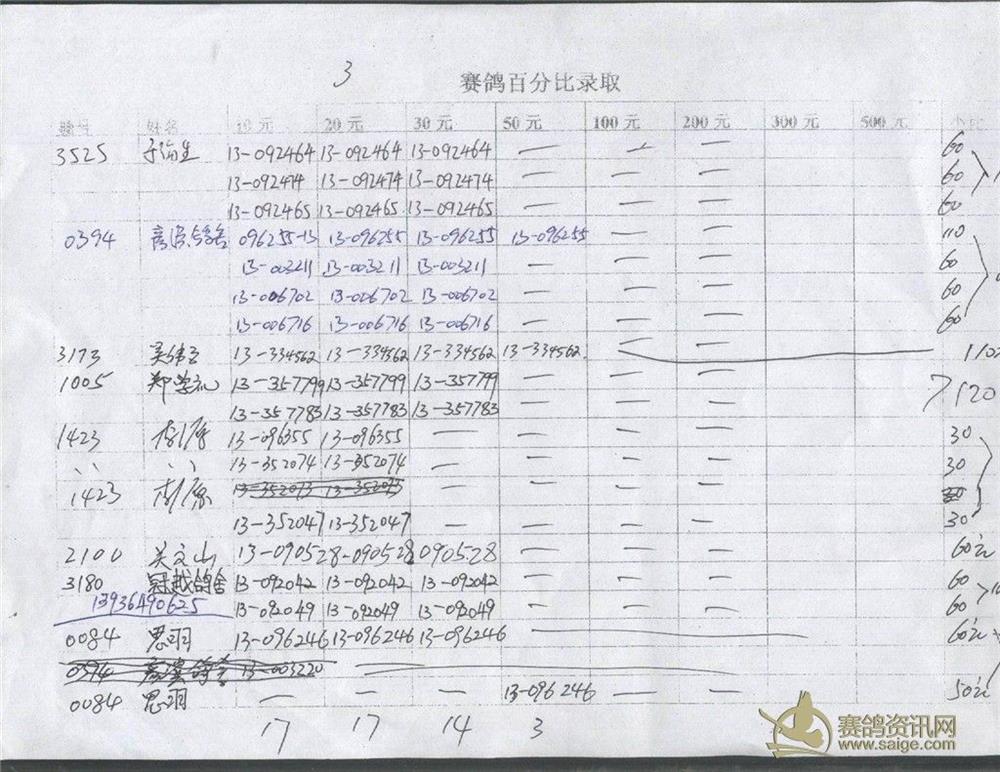 3
赛鸽百分比录取
棚号 姓名 10 元 20 元 30 元 50 元 100 元 200 元 300 元 500 元 小计
3525 13-092464 13-092464 13-092464 — — — 60
13-092474 13-092474 13-092474 — — — 60
13-092465 13-092465 13-092465 — — — 60
0394 096255-13 13-096255 13-096255 13-096255 — — 110
13-003211 13-003211 13-003211 — — — 60
13-006702 13-006702 13-006702 — — — 60
13-006716 13-006716 13-006716 — — — 60
3173 13-334562 13-334562 13-334562 13-334562 — — 110元
1005 郑学礼 13-357799 13-357799 13-357799 — — — 120
13-357783 13-357783 13-357783 — — —
1423 13-096355 13-096355 — — — — 30
〃 〃 13-352074 13-352074 — — — — 30
1423 13-352073 13-352073 — — — — 30
13-352047 13-352047 — — — — 30
2100 关文山 13-090528-090528 090528 — — — 60元
3180 冠越鸽舍 13-092042 13-092042 13-092042 — — — 60
13936490625 13-092049 13-092049 13-092049 — — — 60
0084 思羽 13-096246 13-096246 13-096246 — 60元
0394 13-003220
0084 思羽 — — — 13-096246 — — 50元
17 17 14 3
赛鸽资讯网
www.saige.com